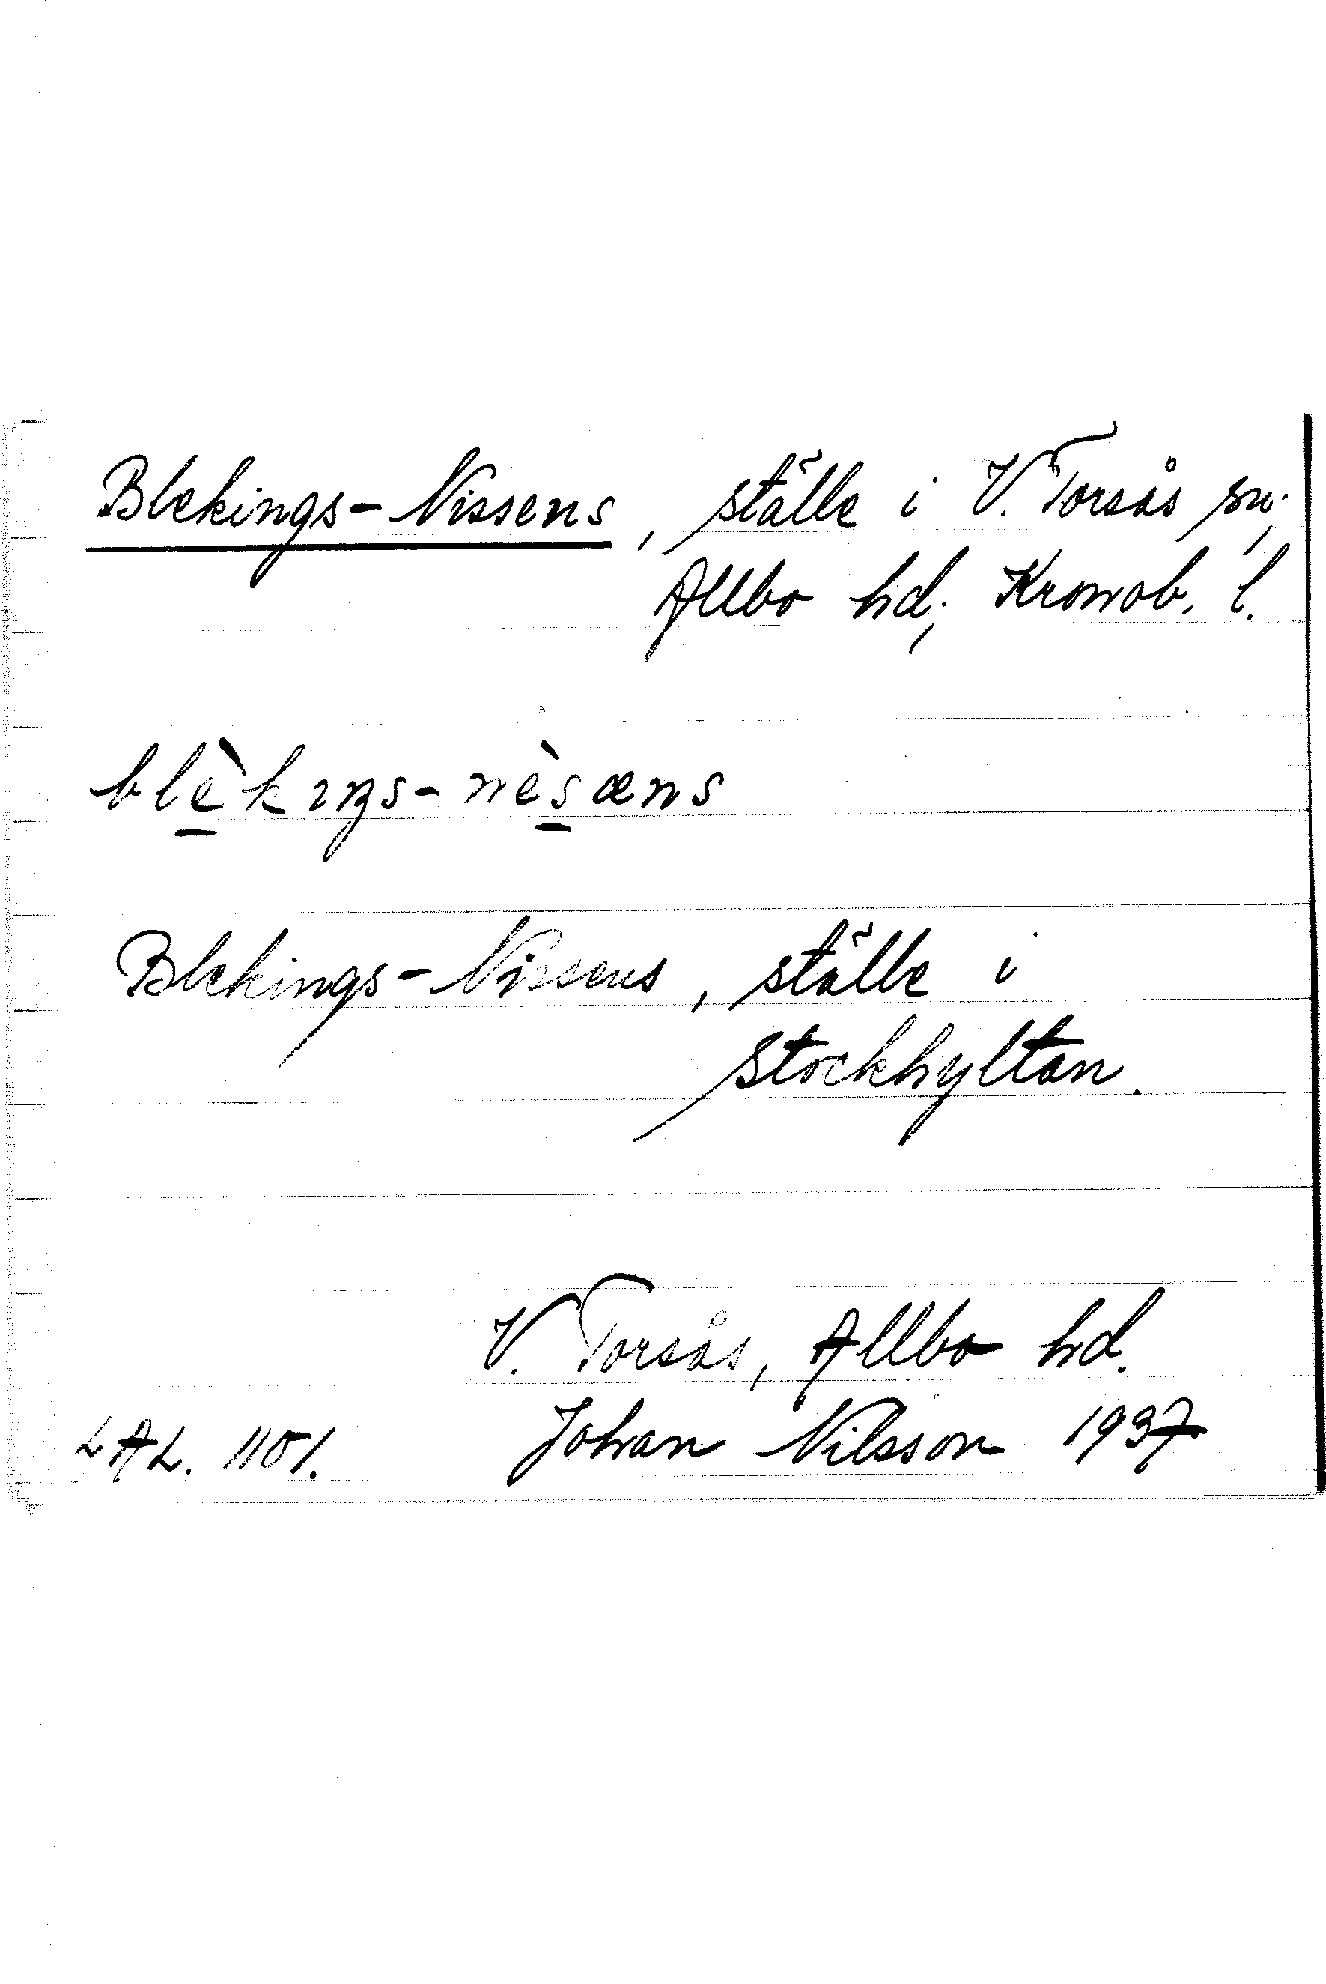 Blekings-Nissens, ställe i V. Torsås sn,
Allbo hd, Kronob. l.
blèkıŋs-nèsæns
Blekings-Nissens, ställe i
Stockhyltan.
V. Torsås, Allbo hd.
LAL. 1101. Johan Nilsson 1937